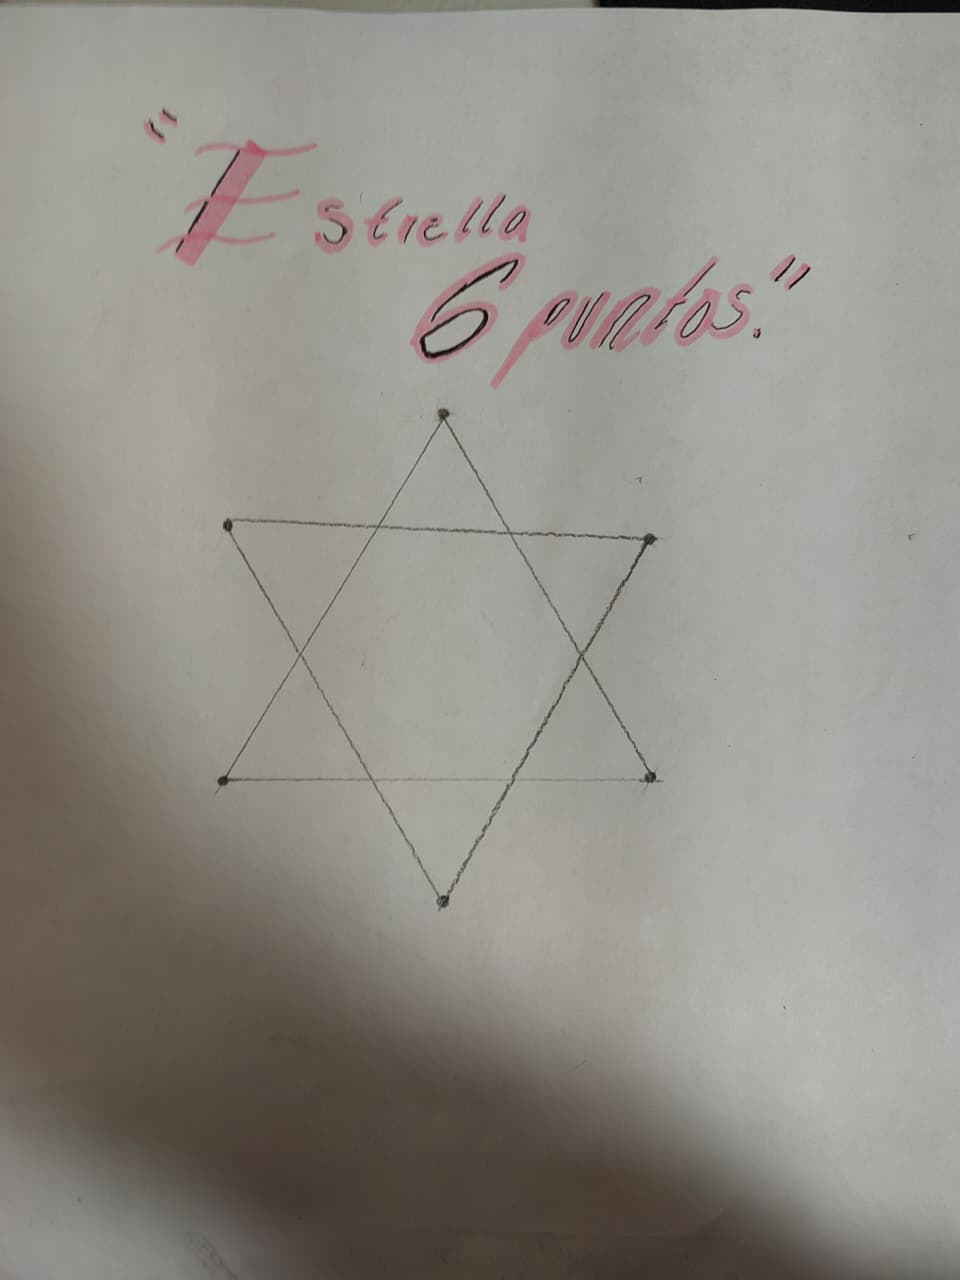 "Estrella
6 puntos."